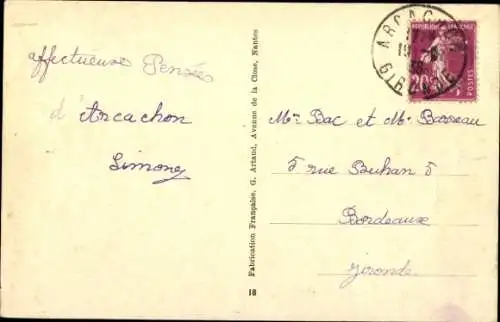 affectueuses Pensées
d'Arcachon
Simone
Fabrication Française, G. Artaud, Avenue de la Close, Nantes
18
ARCACHON
19
GIRONDE
20c
POSTES
Mme Bac et Mr Barreau
5 rue Buhan 5
Bordeaux
Gironde